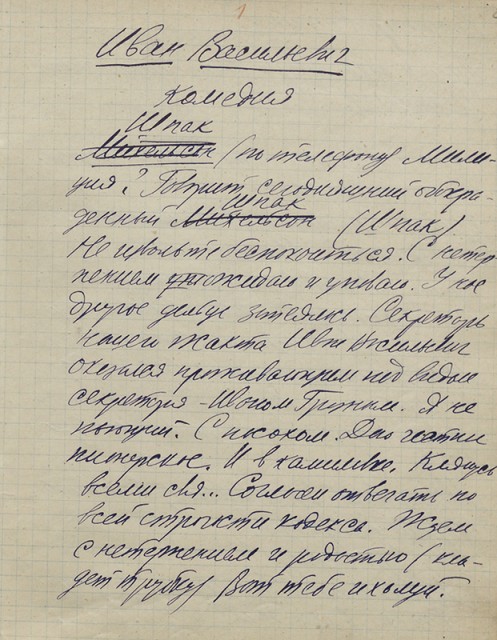 1
Иван Васильевич
Комедия
Шпак
Михельсон (по телефону) Мили-
ция? Говорит сегодняшний обкра-
Шпак
денный Михельсон (Шпак)
Не извольте беспокоиться. С нетер-
пением ожидаю и уповаю. У нас
другое дельце затеялось. Секретарь
нашего жакта Иван Васильевич
оказался проживающим под видом
секретаря - Иваном Грозным. Я не
пьющий. С посохом. Даю
И в Клянусь
всеми свя... Согласен отвечать по
всей строгости кодекса. Ждем
с нетерпением и радостью (кла-
дет трубку) Вот тебе и холуй.